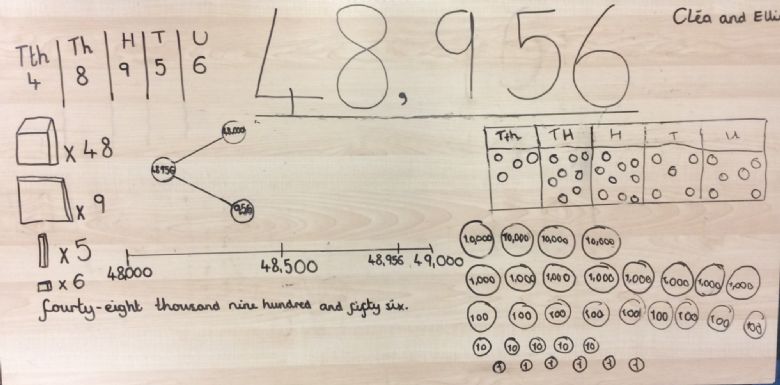 Tth Th H T U
4 8 9 5 6
48,956
Cléa and
x 48
x 9
x 5
x 6
48,000
48956
956
48,000 48,500 48,956 49,000
fourty-eight thousand nine hundred and fifty six.
Tth TH H T U
10,000 10,000 10,000 10,000
1,000 1,000 1,000 1,000 1,000 1,000 1,000 1,000
100 100 100 100 100 100 100 100 100
10 10 10 10 10
1 1 1 1 1 1